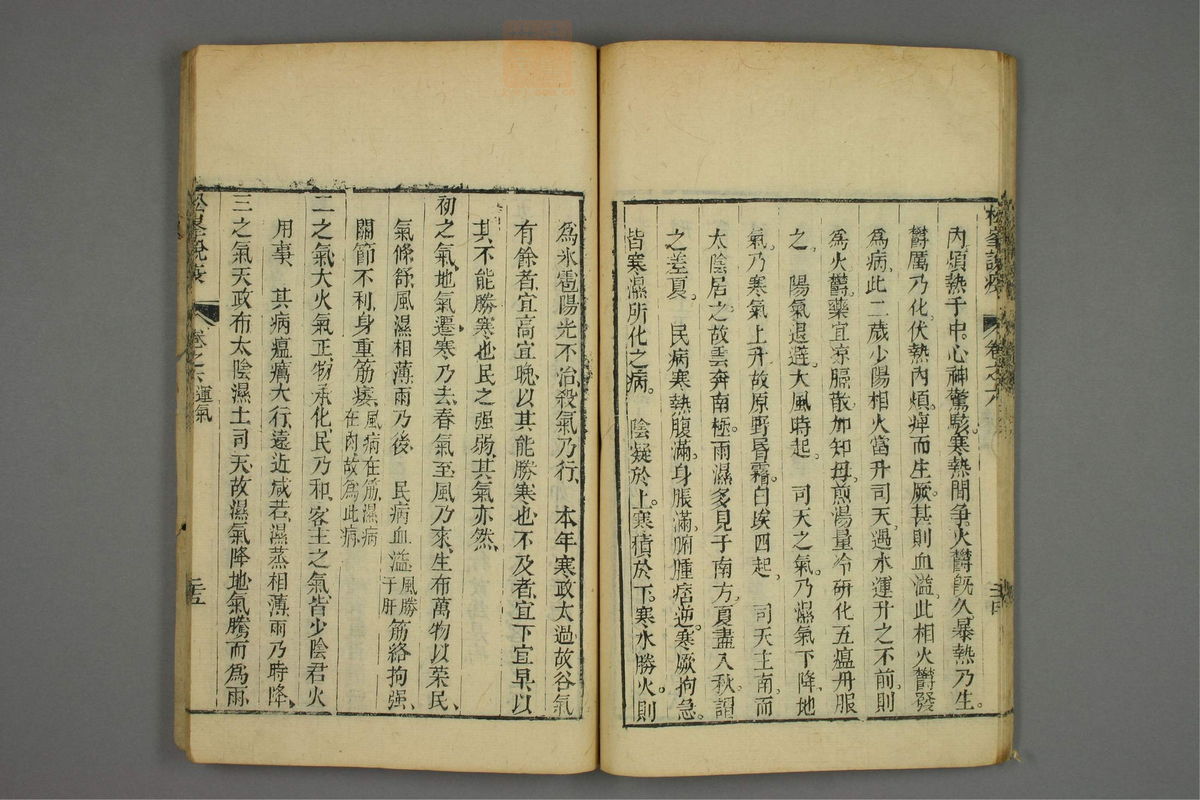 松峯說疫 卷之六 二十四
內煩熱于中心神驚駭寒熱間爭火鬱旣久暴熱乃生
鬱厲乃化伏熱內煩痺而生厥甚則血溢此相火鬱發
爲病此二歲少陽相火當升司天遇水運升之不前則
爲火鬱藥宜涼膈散加知母煎湯量冷研化五瘟丹服
之 陽氣退避大風時起 司天之氣乃濕氣下降地
氣乃寒氣上升故原野昏霜白埃四起 司天上南而
太陰居之故雲奔南極雨濕多見于南方夏盡入秋謂
之差夏 民病寒熱腹滿身脹滿胕腫痞逆寒厥拘急
皆寒濕所化之病 陰凝於上寒積於下寒水勝火則
爲氷雹陽光不治殺氣乃行 本年寒政太過故谷氣
有餘者宜高宜晚以其能勝寒也不及者宜下宜早以
其不能勝寒也民之强弱其氣亦然
初之氣地氣遷寒乃去春氣至風乃來生布萬物以榮民
氣條舒風濕相薄雨乃後 民病血溢風勝于肝筋絡拘强
關節不利身重筋痿風病在筋濕病在肉故爲此病
二之氣大火氣正物承化民乃和客主之氣皆少陰君火
用事 其病瘟癘大行遠近咸若濕蒸相薄雨乃時降
三之氣天政布太陰濕土司天故濕氣降地氣騰而爲雨
松峯說疫 卷之六 運氣 二十五